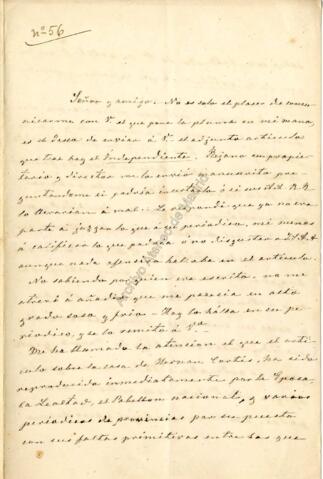 nº 56
Señor y amigo. No es solo el placer de comu-
nicarme con V. el que pone la pluma en mi mano,
es el desea de enviar á V. el adjunto articulo
que trae hoy el Independiente. Rejano su propie-
tario y director me lo envió manuscrito pre-
guntandome si podria insertarlo ó si sus A.A. R.R.
lo llevarian á mal. Le respondí que yo no era
parte á juzgar lo que á su periódico, ni menos
á calificar lo que podria ó no disgustar a S.A.A.
aunque nada ofensivo hallaba en el artículo.
No sabiendo por quien era escrito, no me
atreví á añadir que me parecia en alto
grado soso y frio. Hoy lo há en su pe-
riodico, y se lo remito á Vd.
Me ha llamado la atencion el que el arti-
culo sobre la casa de Hernan Cortés, ha sido
reproducido inmediatamente por la Epoca,
la Lealtad, el Pabellon nacional, y varios
periodicos de provincias por su puesto
con sus faltas primitivas entre las que
Archivo de Madrid